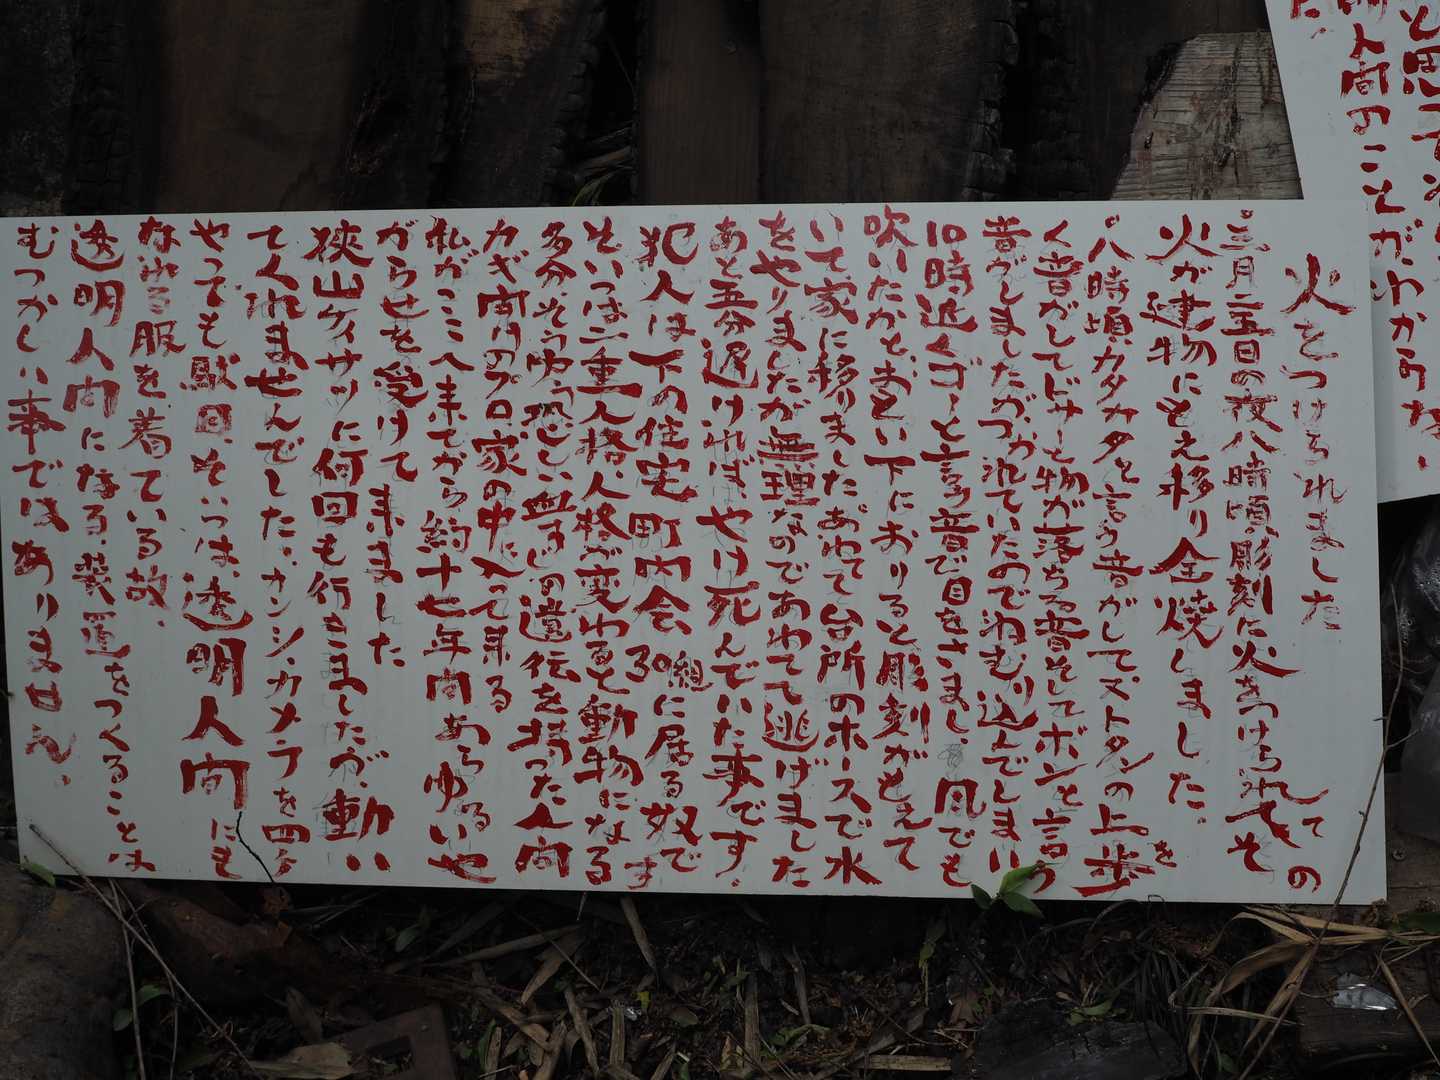 火をつけられました
三月二五日の夜八時頃、彫刻に火をつけられてその
火が建物にとえ移り全焼しました。そ
八時頃カタカタと言う音がしてストタンの上歩を
く音がしてドサーと物が落ちる音そしてボンと言う
音がしましたがつかれていたのでねむり込んでしまい
10時近くゴーと言う音で目をさまし、風でも
吹いたかとおもい下におりると彫刻がもえて
いて家に移りましたあわてて台所のホースで水
をやりましたが無理なのであわてて逃げました
あと五分遅ければ、やけ死んでいた事です。
犯人は下の住宅町内会30に居る奴です
そいつは二重人格、人格が変わると動物になる
多分そうゆう恐しい血すじの遺伝を持った人間
カギ開けのプロ家の中に入って来る
私がここへ来てから約十七年間あらゆるいや
がらせを受けて来ました
狭山ケイサツに何回も行きましたが、動い
てくれませんでした。カンシカメラを四台
やっても駄目、そいつは、透明人間にも
なれる服を着ている故、
透明人間になる、装置をつくることは
むつかしい事ではありません。
と思って
人間のことがわからな、
た。